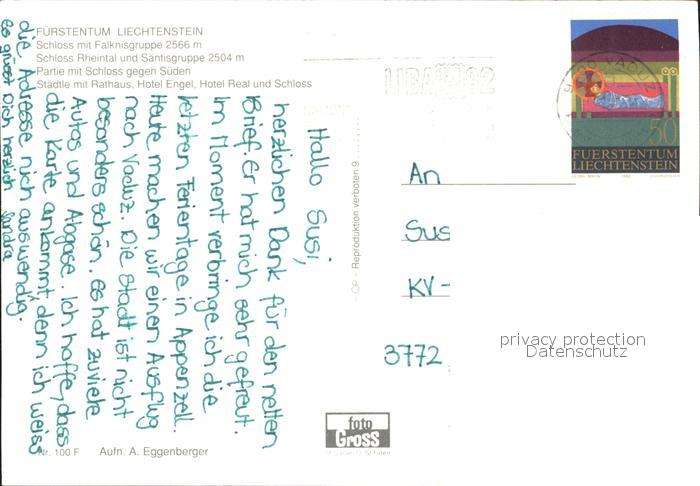 FÜRSTENTUM LIECHTENSTEIN
Schloss mit Falknisgruppe 2566 m
Schloss Rheintal und Säntisgruppe 2504 m
Partie mit Schloss gegen Süden
Städtle mit Rathaus, Hotel Engel, Hotel Real und Schloss
Hallo Susi,
herzlichen Dank für den netten
Brief. er hat mich sehr gefreut.
Im Moment verbringe ich die
letzten Ferientage in Appenzell.
Heute machen wir einen Ausflug
nach Vaduz. Die Stadt ist nicht
besonders schön. es hat zuviele
Autos und Abgase. Ich hoffe, dass
die Karte ankommt, denn ich weiss
die Adresse nich auswendig.
es grüsst Dich herzlich Sandra
Nr. 100 F Aufn. A. Eggenberger
foto
Gross
Reproduktion verboten 9
VADUZ
50
FUERSTENTUM
LIECHTENSTEIN
An
Sus
KV-
3772
privacy protection
Datenschutz